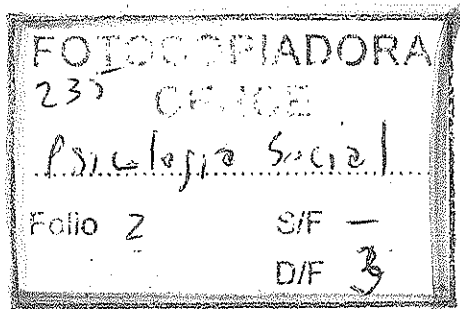 FOTOCOPIADORA
235
Psicología Social
Folio 2 S/F —
D/F 3